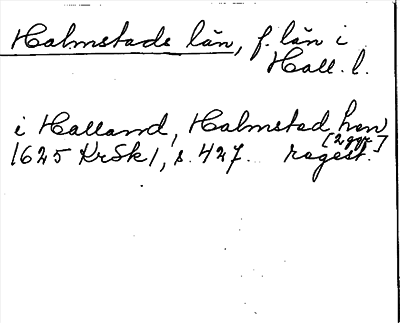 Halmstads län, f. län i
Hall. l.
i Halland, Halmstad han
[2 ggr]
1625 KrSk 1, s. 427. regest.